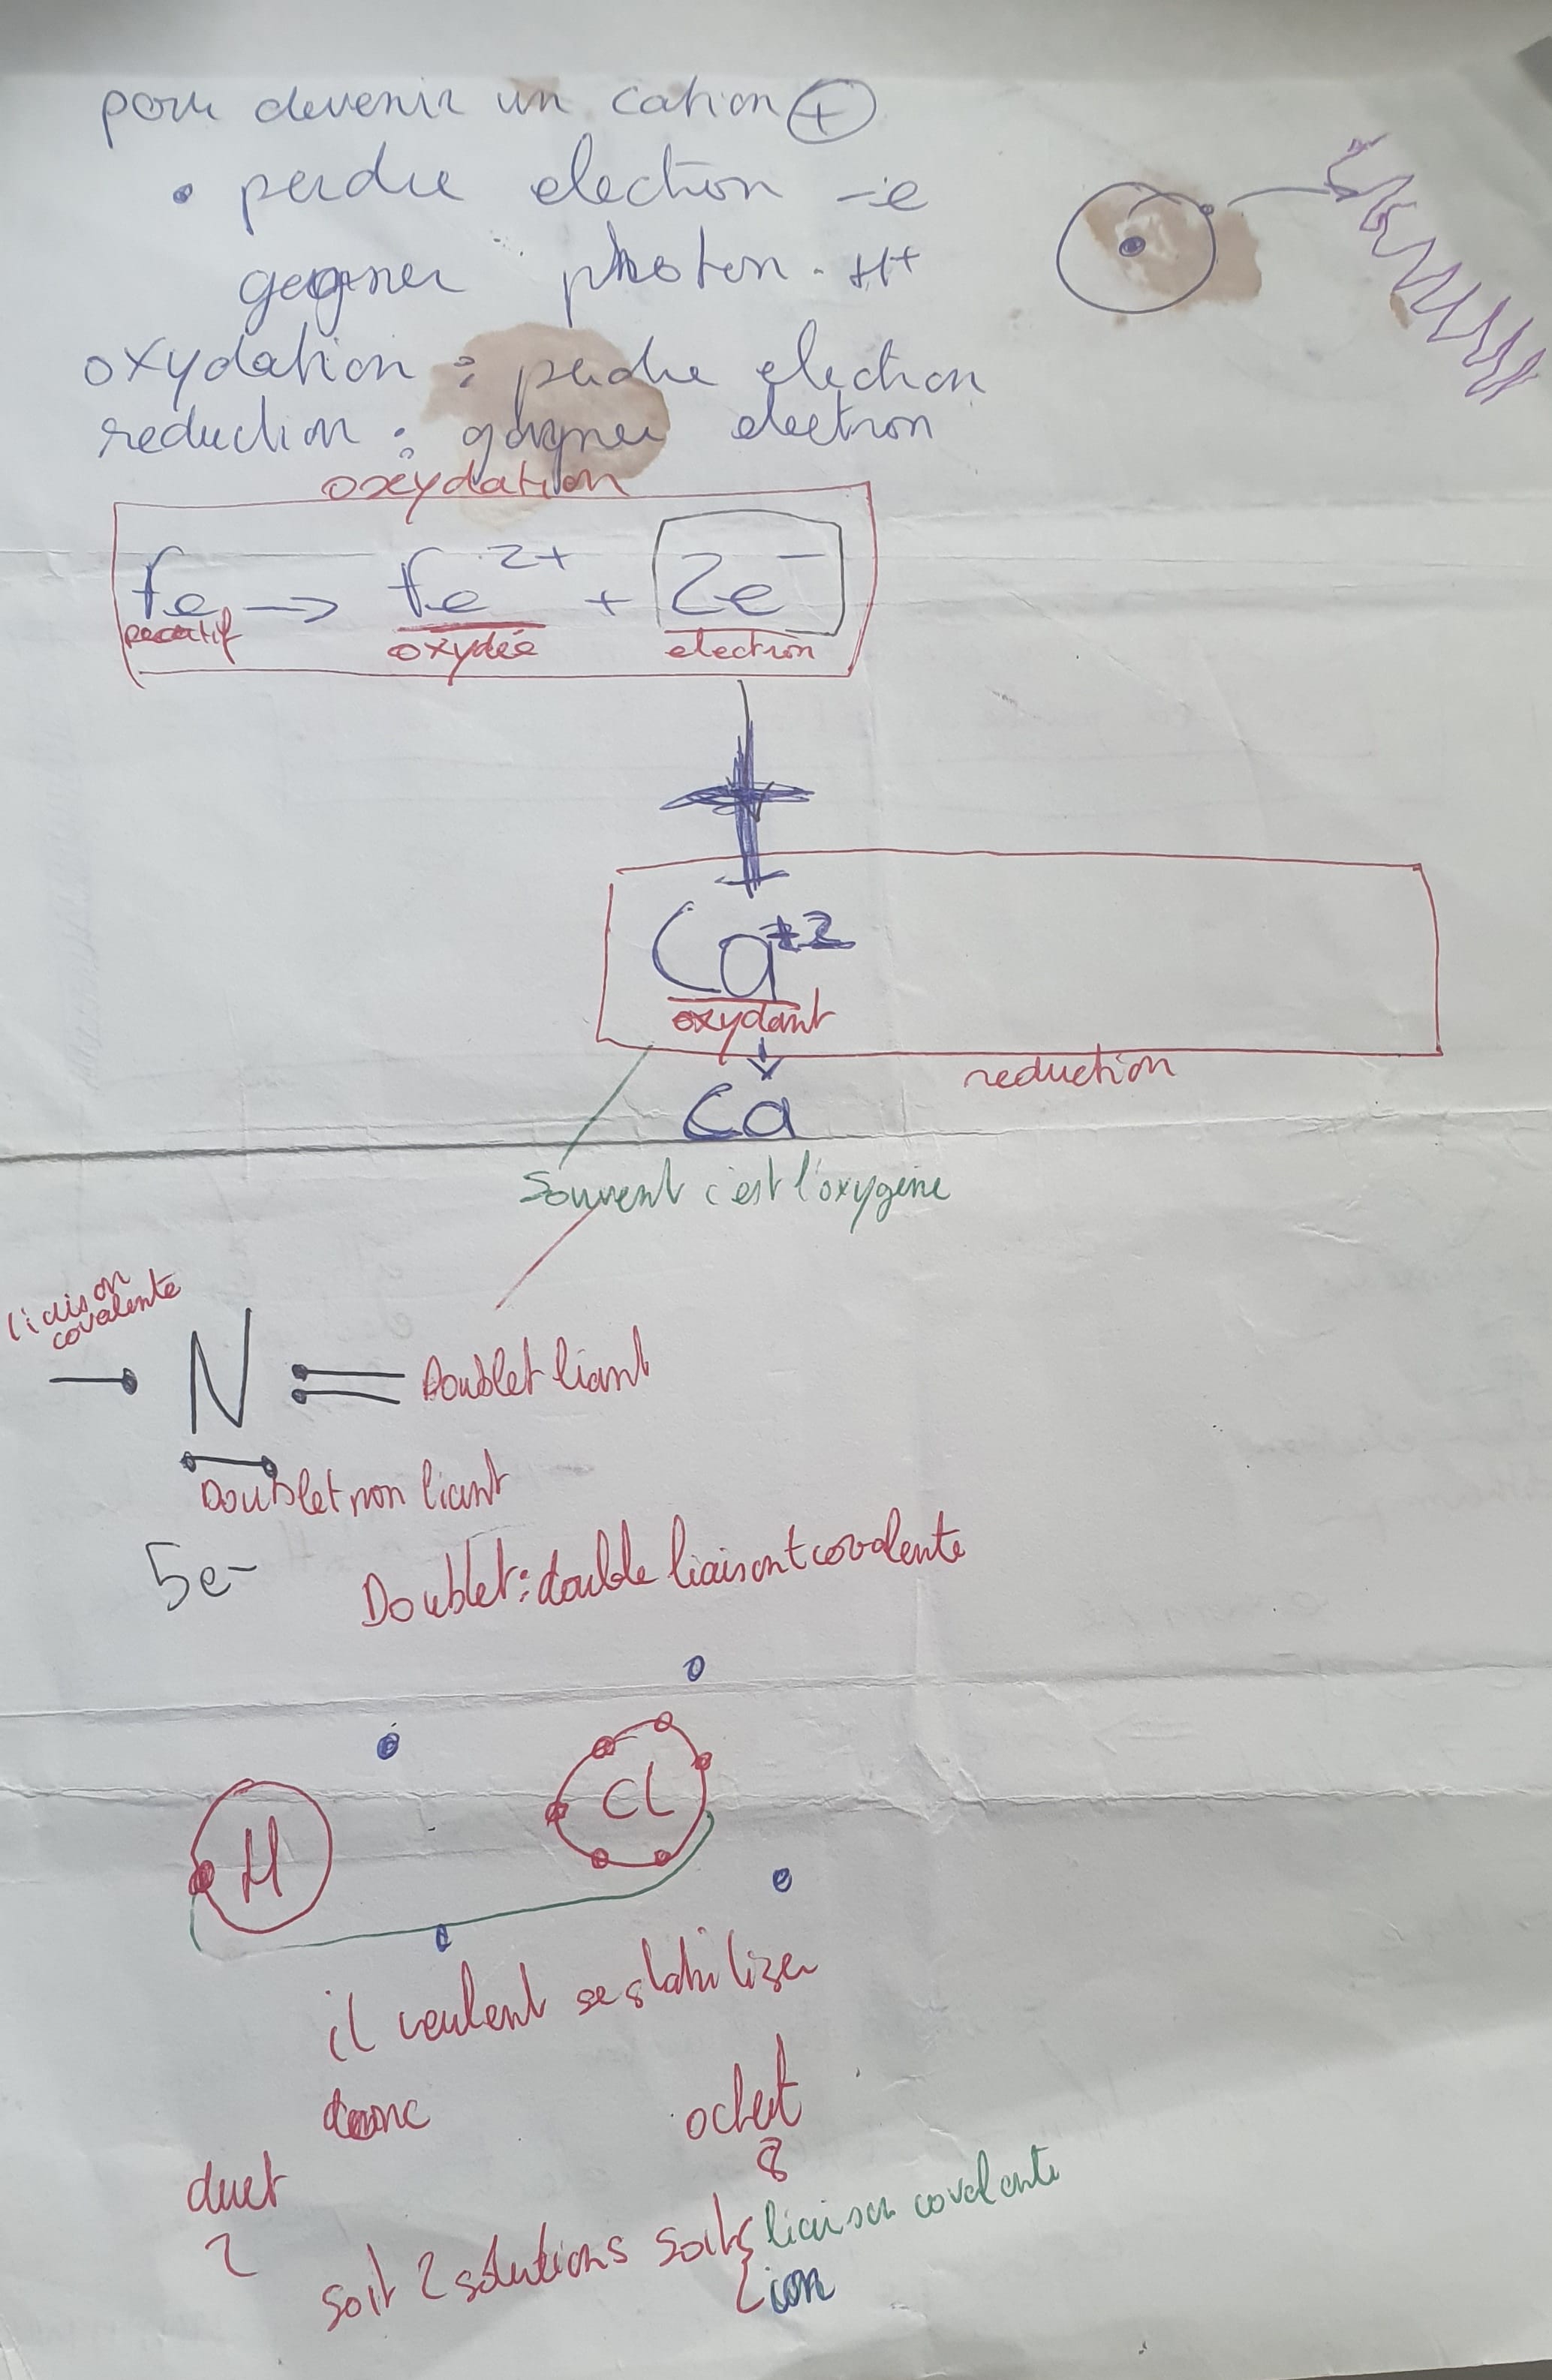 pour devenir un cation +
• perdre electron -e
gagner photon. H+
oxydation : perdre electron
reduction : gagner electron
oxydation
fe → fe 2+ + 2e-
oxydée electron
Ca+2
oxydant
reduction
Ca
Souvent c'est l'oxygène
liaison
covalente
N
Doublet liant
Doublet non liant
5e-
Doublet : double liaisont covalente
H
Cl
il veulent se stabilizer
donc
octet
8
duet
2
soit 2 solutions soit liaison covalente
ion